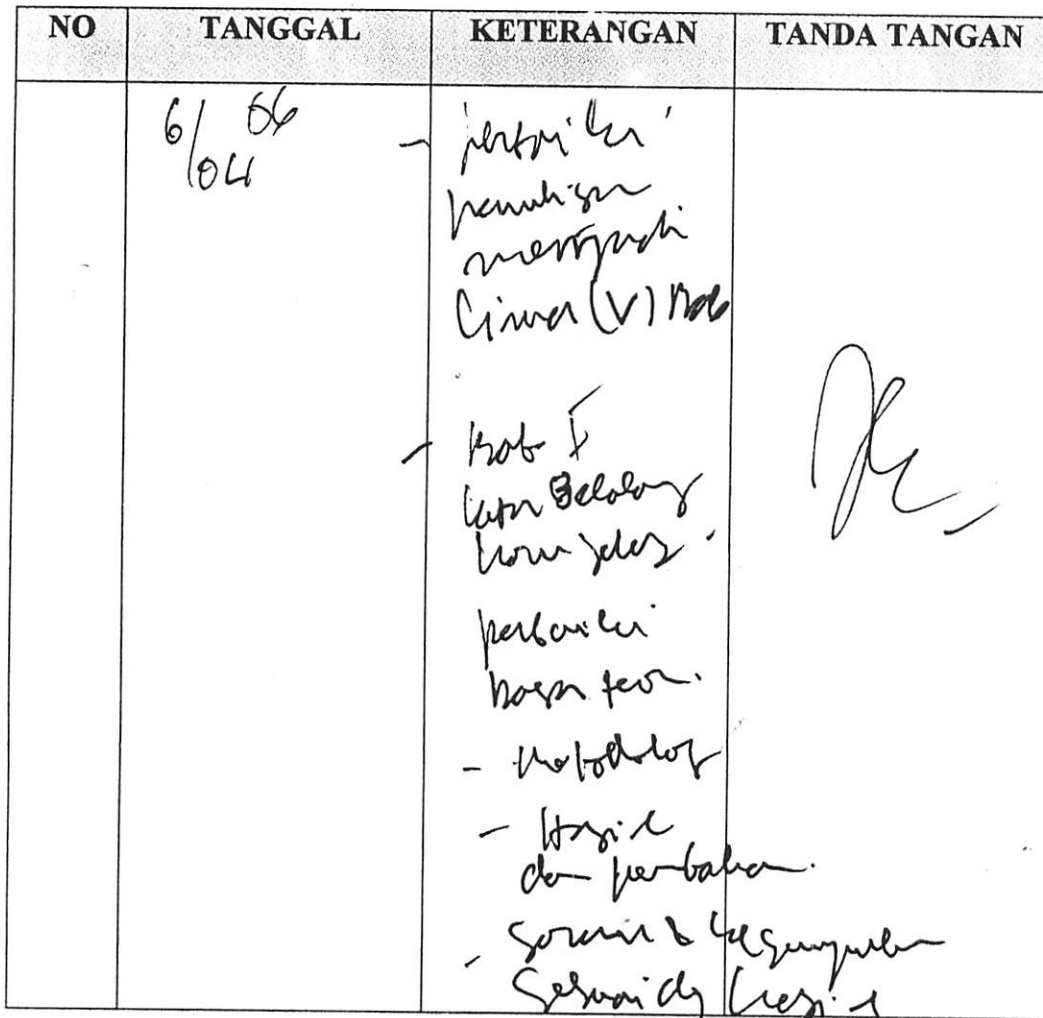 NO TANGGAL KETERANGAN TANDA TANGAN
6/04 06
- perbaiki
penulisan
menjadi
Lima (V) Bab
- Bab I
Latar Belakang
kurang jelas.
perbaiki
bagan teori.
- Metodologi
- Hasil
dan pembahasan.
- Saran & kesimpulan
Sesuai dg hasil